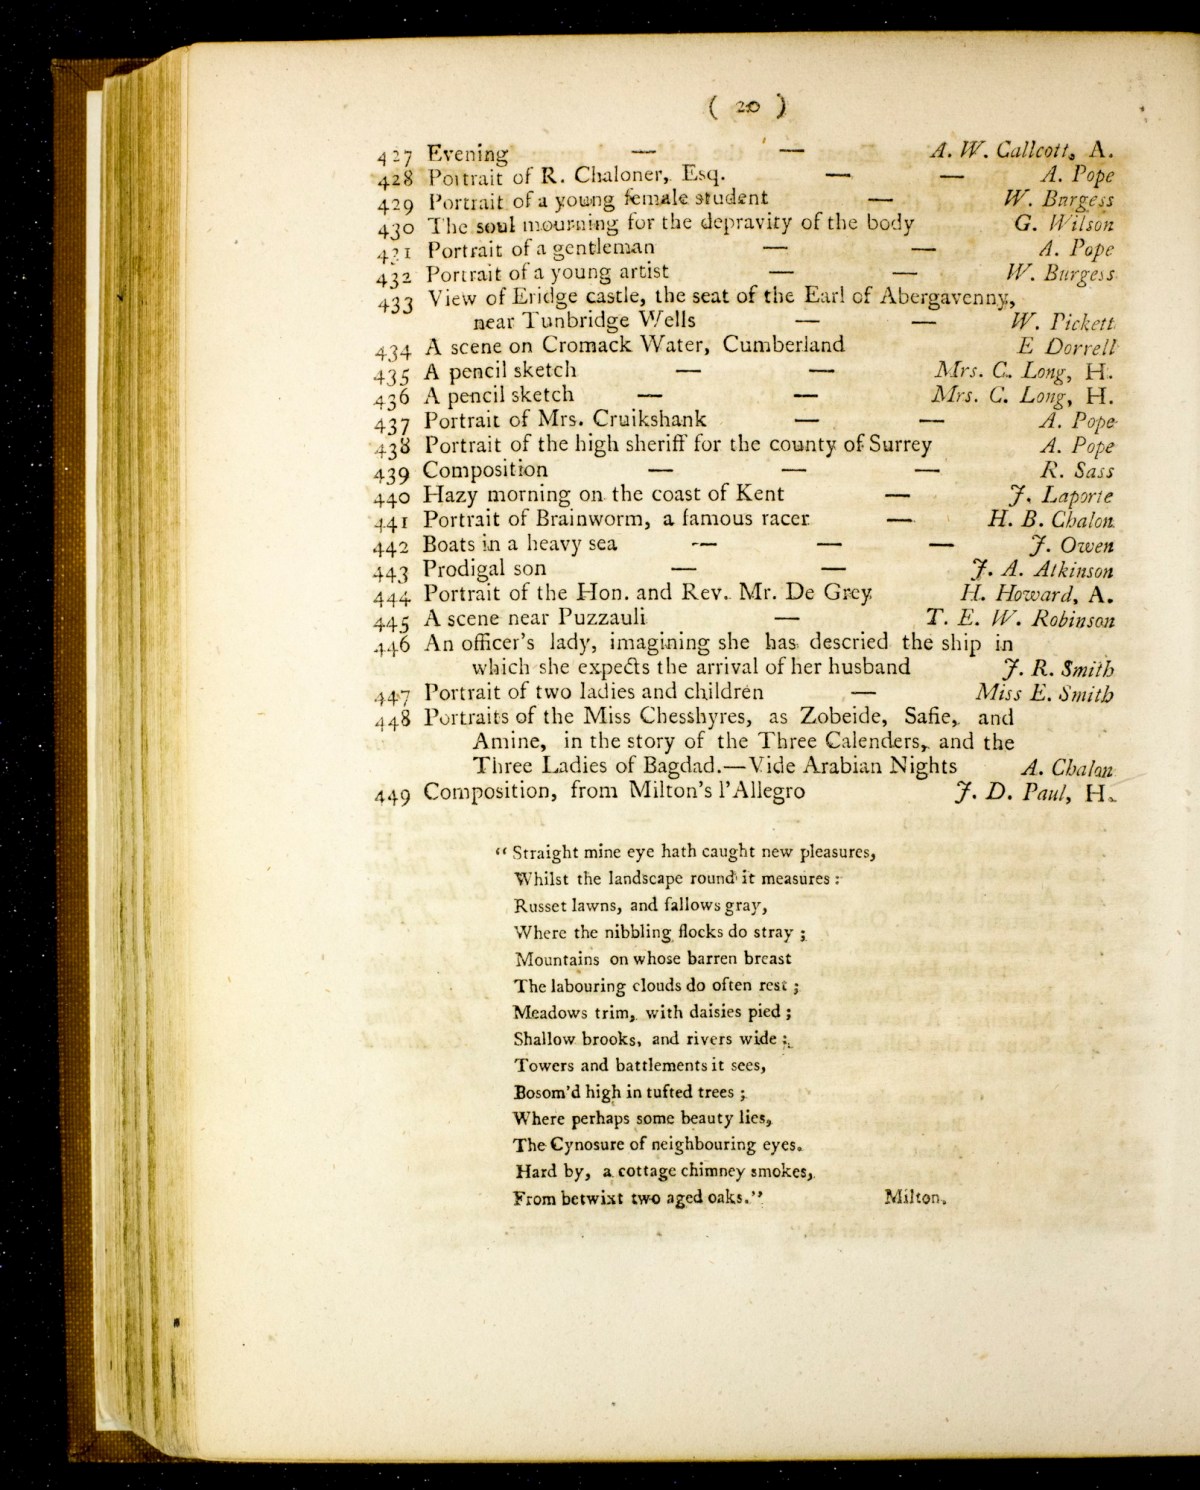 ( 20 )
427 Evening — — A. W. Callcott, A.
428 Portrait of R. Chaloner, Esq. — — A. Pope
429 Portrait of a young female student — W. Burgess
430 The soul mourning for the depravity of the body G. Wilson
431 Portrait of a gentleman — — A. Pope
432 Portrait of a young artist — — W. Burgess
433 View of Eridge castle, the seat of the Earl of Abergavenny,
near Tunbridge Wells — — W. Pickett
434 A scene on Cromack Water, Cumberland E Dorrell
435 A pencil sketch — — Mrs. C. Long, H.
436 A pencil sketch — — Mrs. C. Long, H.
437 Portrait of Mrs. Cruikshank — — A. Pope
438 Portrait of the high sheriff for the county of Surrey A. Pope
439 Composition — — — R. Sass
440 Hazy morning on the coast of Kent — J. Laporte
441 Portrait of Brainworm, a famous racer — H. B. Chalon
442 Boats in a heavy sea — — — J. Owen
443 Prodigal son — — J. A. Atkinson
444 Portrait of the Hon. and Rev. Mr. De Grey H. Howard, A.
445 A scene near Puzzauli — T. E. W. Robinson
446 An officer's lady, imagining she has descried the ship in
which she expects the arrival of her husband J. R. Smith
447 Portrait of two ladies and children — Miss E. Smith
448 Portraits of the Miss Chesshyres, as Zobeide, Safie, and
Amine, in the story of the Three Calenders, and the
Three Ladies of Bagdad.—Vide Arabian Nights A. Chalon
449 Composition, from Milton's l'Allegro J. D. Paul, H.
“ Straight mine eye hath caught new pleasures,
Whilst the landscape round it measures :
Russet lawns, and fallows gray,
Where the nibbling flocks do stray ;
Mountains on whose barren breast
The labouring clouds do often rest ;
Meadows trim, with daisies pied ;
Shallow brooks, and rivers wide ;
Towers and battlements it sees,
Bosom'd high in tufted trees ;
Where perhaps some beauty lies,
The Cynosure of neighbouring eyes.
Hard by, a cottage chimney smokes,
From betwixt two aged oaks.” Milton.